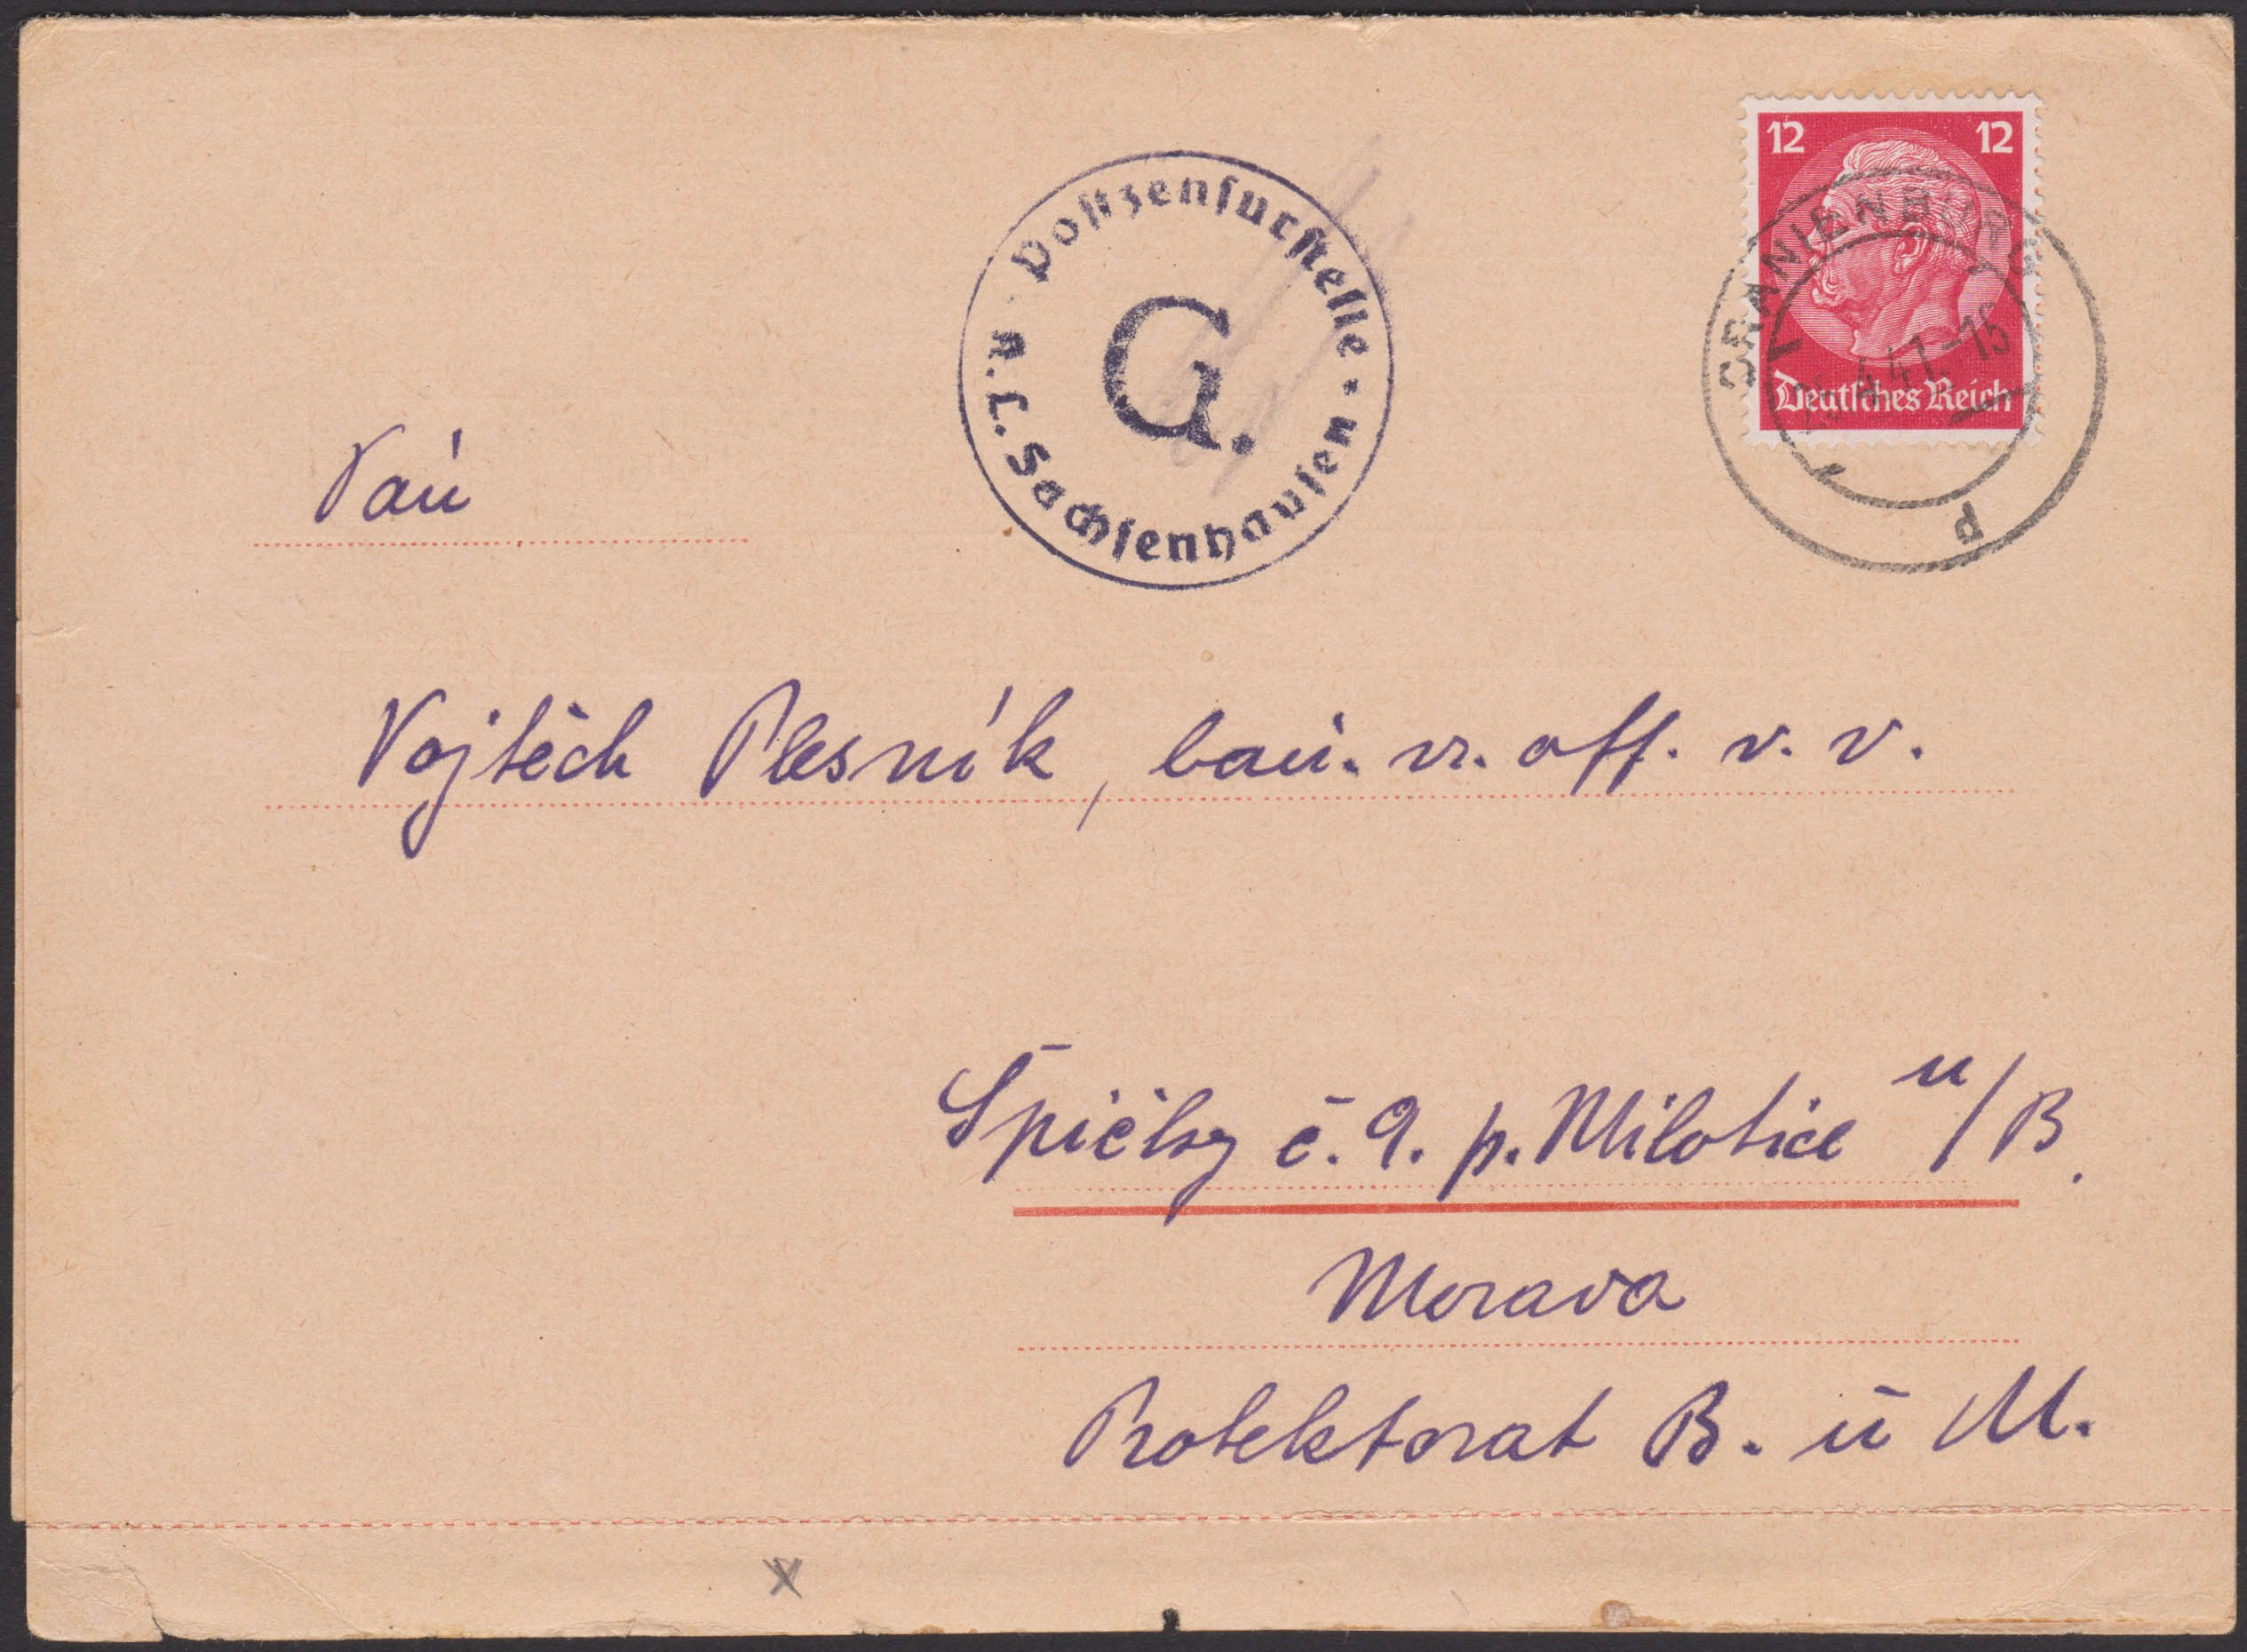 12 12
Deutsches Reich
ORANIENBURG
4.41.-15
d
Postzensurstelle
G.
K.L. Sachsenhausen
Pan
Vojtěch Plesník, ban. vr. off. v. v.
Špičky č. 9. p. Milotice u/B.
Morava
Protektorat B. u M.
x